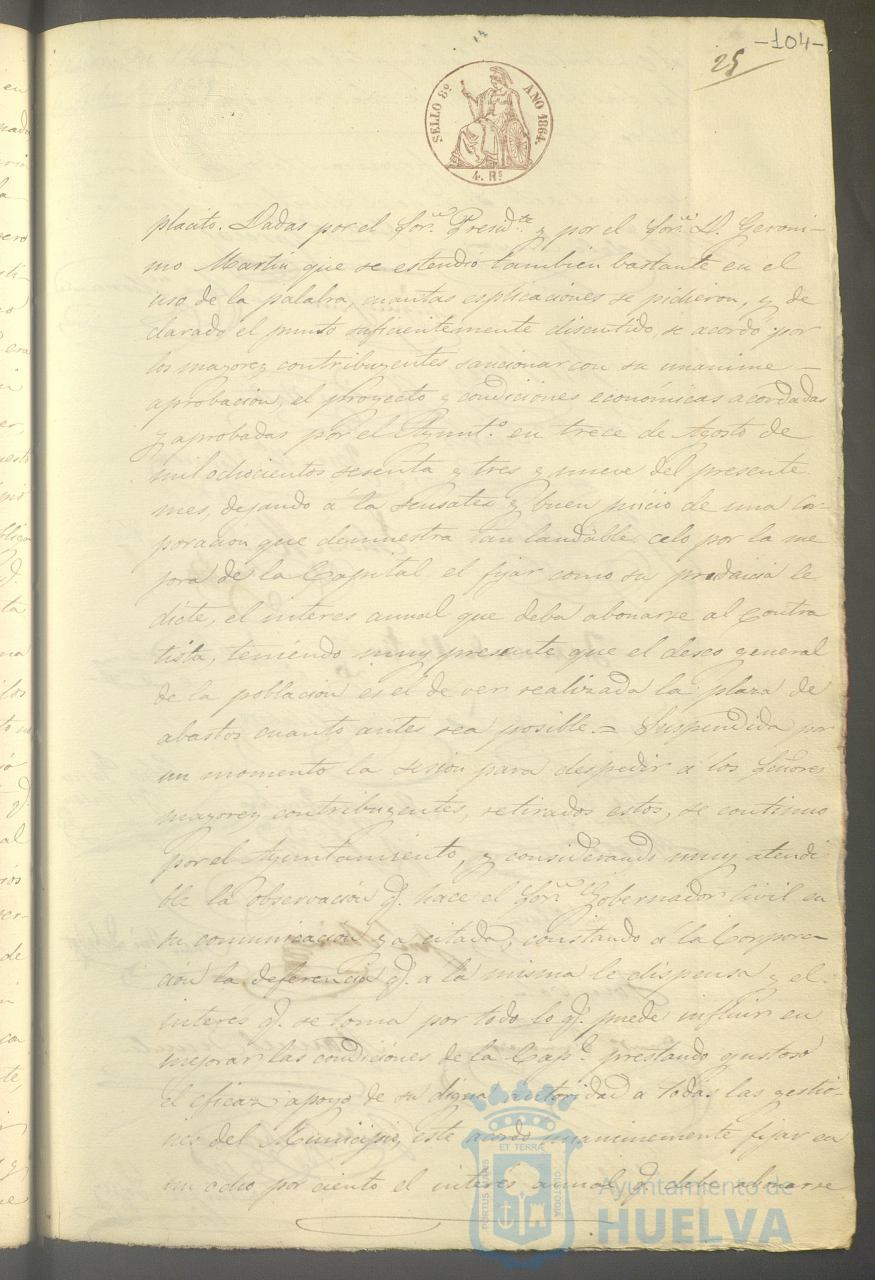 -104-
25
SELLO 8º AÑO 1864.
4. Rs
placito. Dadas por el Sor. Presidte. y por el Sor. D. Geroni-
mo Martin que se estendió tambien bastante en el
uso de la palabra, cuantas esplicaciones se pidieron, y de
clarado el punto suficientemente discutido, se acordó por
los mayores contribuyentes sancionar con su unanime
aprobacion, el proyecto y condiciones económicas acordadas
y aprobadas por el Ayunto. en trece de Agosto de
mil ochocientos sesenta y tres y nueve del presente
mes, dejando á la sensatez y buen juicio de una Cor-
poracion que demuestra tan laudable celo por la me
jora de la Capital el fijar como su prudencia le
dicte, el interes anual que deba abonarse al Contra
tista, teniendo muy presente que el deseo general
de la poblacion es el de ver realizada la plaza de
abastos cuanto antes sea posible.= Suspendida por
un momento la sesion para despedir á los Señores
mayores contribuyentes, retirados estos, se continuo
por el Ayuntamiento, y considerando muy atendi
ble la observacion q. hace el Sor. Gobernador Civil en
su comunicacion ya citada, constando á la Corpora-
cion la deferencia q. a la misma le dispensa y el
interes q. se toma por todo lo q. puede influir en
mejorar las condiciones de la Capl. prestando gustoso
el eficaz apoyo de su digna autoridad a todas las gestio-
nes del Municipio, este acordó unanimemente fijar en
un ocho por ciento el interes anual q. debe abonarse
PORTUS MARIS ET TERRÆ CUSTODIA
Ayuntamiento de
HUELVA